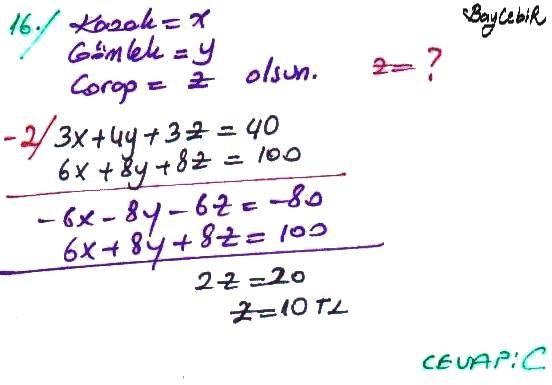 BayCebiR
16./ Kazak = x
Gömlek = y
Çorap = z olsun. z = ?
-2/ 3x + 4y + 3z = 40
6x + 8y + 8z = 100
-6x - 8y - 6z = -80
6x + 8y + 8z = 100
2z = 20
z = 10 TL
CEVAP: C